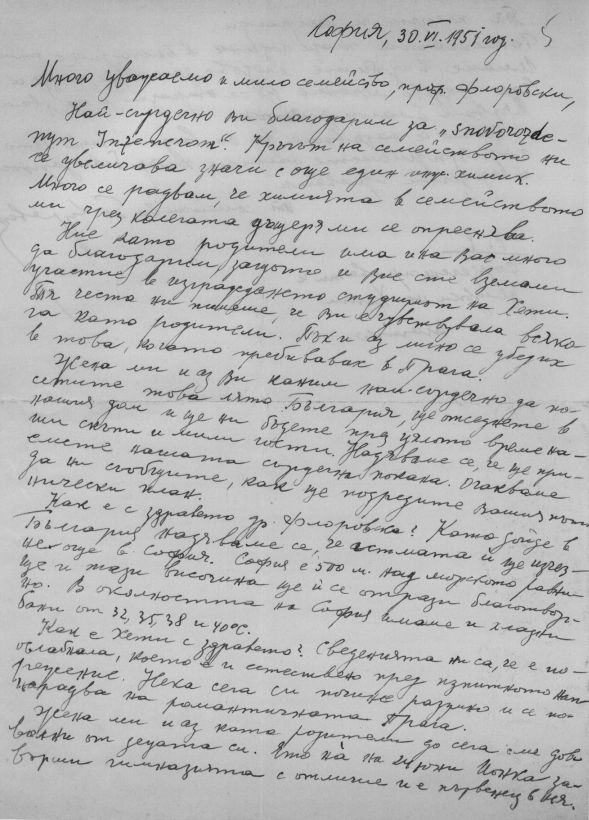 София, 30.VI.1951 год.
Много уважаемо и мило семейство, проф. Флоровски,
Най-сърдечно Ви благодарим за „Snovorozde-
CJut Inženerom". Кръгът на семейството ни
се увеличава значи с още един инж. химик.
Много се радвам, че химията в семейството
ми чрез колегата дъщеря ми се опреснява.
Ние като родители има и на Вас много
да благодарим, защото и Вие сте вземали
участие в изграждането студиумът на Хети.
Тя често ни пишеше, че Ви е чувствувала всяко
га като родители. Пък и аз лично се убедих
в това, когато пребивавах в Прага.
Жена ми и аз Ви каним най-сърдечно да по-
сетите това лято България, ще отседнете в
нашия дом и ще ни бъдете през цялото време на-
ши скъпи и мили гости. Надяваме се, че ще при-
емете нашата сърдечна покана. Очакваме
да ни съобщите, как ще подредите Вашия пъте
нически план.
Как е с здравето др. Флоровска? Като дойде в
България надяваме се, че астмата и ще изчез-
не още в София. София е 500 м. над морското равни
ще и тази височина ще й се отрази благотвор-
но. В околността на София имаме и хладни
бани от 32, 35, 38 и 40°C.
Как е Хети с здравето? Сведенията ни са, че е по-
ослабнала, което е и естествено пред изпитното нап
режение. Нека сега си почине разумно и се по-
нарадва на романтичната Прага.
Жена ми и аз като родители до сега сме дов
волни от децата си. Ето на на 24 юни Йонка за-
върши гимназията с отличие и е първенец в нея.